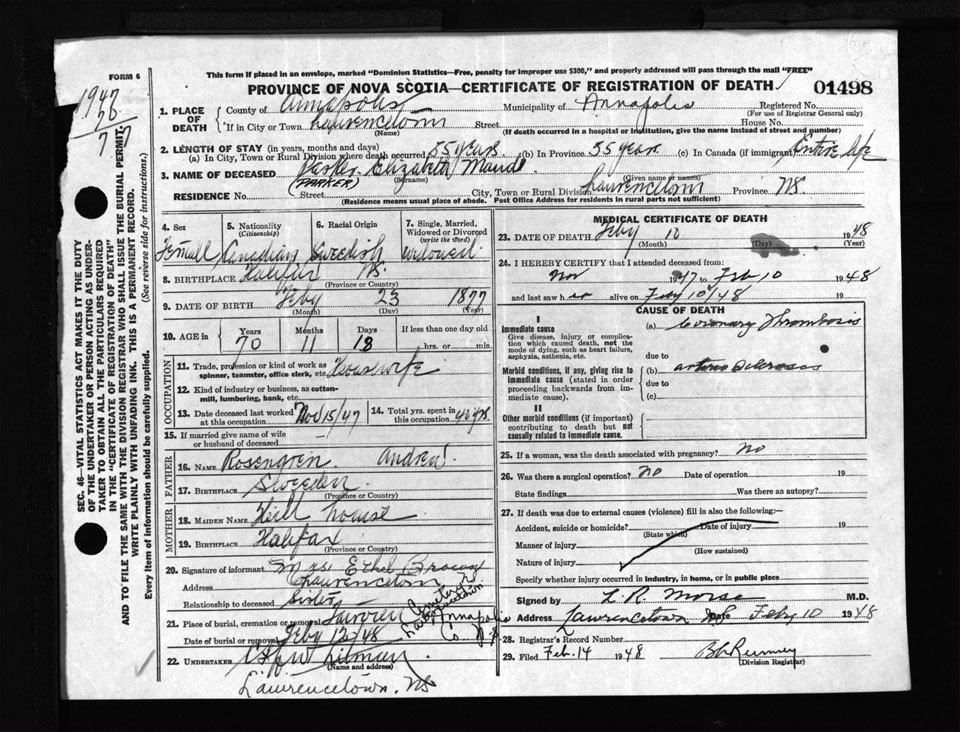 FORM 6
This form if placed in an envelope, marked "Dominion Statistics—Free, penalty for improper use $300," and properly addressed will pass through the mail "FREE"
PROVINCE OF NOVA SCOTIA—CERTIFICATE OF REGISTRATION OF DEATH
01498
1. PLACE OF DEATH
County of Annapolis Municipality of Annapolis Registered No.
(For use of Registrar General only)
If in City or Town Lawrencetown Street House No.
(Name) (If death occurred in a hospital or institution, give the name instead of street and number)
2. LENGTH OF STAY (in years, months and days)
(a) In City, Town or Rural Division where death occurred 55 years (b) In Province 55 years (c) In Canada (if immigrant) Entire life
3. NAME OF DECEASED Parker Elizabeth Maude
(PARKER) (Surname) (Given name or names)
RESIDENCE No. Street City, Town or Rural Division Lawrencetown Province NS.
(Residence means usual place of abode. Post Office Address for residents in rural parts not sufficient)
4. Sex 5. Nationality (Citizenship) 6. Racial Origin 7. Single, Married, Widowed or Divorced (write the word)
Female Canadian Swedish widowed
8. BIRTHPLACE Halifax NS.
(Province or Country)
9. DATE OF BIRTH Feby 23 1877
(Month) (Day) (Year)
10. AGE in Years Months Days If less than one day
70 11 18 hrs. or min.
OCCUPATION
11. Trade, profession or kind of work as spinner, teamster, office clerk, etc. Housewife
12. Kind of industry or business, as cotton-mill, lumbering, bank, etc.
13. Date deceased last worked at this occupation Nov 15/47 14. Total yrs. spent in this occupation
15. If married give name of wife or husband of deceased
FATHER
16. NAME Rosengren Andrew
17. BIRTHPLACE Sweeden
(Province or Country)
MOTHER
18. MAIDEN NAME Louise
19. BIRTHPLACE Halifax
(Province or Country)
20. Signature of informant Mrs Ethel Brown
Address Lawrencetown NS
Relationship to deceased Sister
21. Place of burial, cremation or removal Fairview Cemetery Lawrencetown Annapolis Co. N.S.
Date of burial or removal Feby 12/48
22. UNDERTAKER
(Name and address)
Lawrencetown, NS
MEDICAL CERTIFICATE OF DEATH
23. DATE OF DEATH Feby 10 1948
(Month) (Day) (Year)
24. I HEREBY CERTIFY that I attended deceased from:
Nov 1947 to Feb 10 1948
and last saw her alive on Feby 10/48 19
CAUSE OF DEATH
I
Immediate cause
Give disease, injury or complication which caused death, not the mode of dying, such as heart failure, asphyxia, asthenia, etc.
(a) Coronary Thrombosis
due to
Morbid conditions, if any, giving rise to immediate cause (stated in order proceeding backwards from immediate cause).
(b) arterio Sclerosis
due to
(c)
II
Other morbid conditions (if important) contributing to death but not causally related to immediate cause.
25. If a woman, was the death associated with pregnancy? No
26. Was there a surgical operation? No Date of operation 19
State findings Was there an autopsy?
27. If death was due to external causes (violence) fill in also the following:—
Accident, suicide or homicide? Date of injury 19
(State which)
Manner of injury
(How sustained)
Nature of injury
Specify whether injury occurred in industry, in home, or in public place
Signed by L. R. Morse M.D.
Address Lawrencetown Date Feby 10 1948
28. Registrar's Record Number
29. Filed Feb. 14 1948
(Division Registrar)
SEC. 46—VITAL STATISTICS ACT MAKES IT THE DUTY OF THE UNDERTAKER OR PERSON ACTING AS UNDERTAKER TO OBTAIN ALL THE PARTICULARS REQUIRED IN THE "CERTIFICATE OF REGISTRATION OF DEATH" AND TO FILE THE SAME WITH THE DIVISION REGISTRAR WHO SHALL ISSUE THE BURIAL PERMIT.
WRITE PLAINLY WITH UNFADING INK. THIS IS A PERMANENT RECORD.
Every item of information should be carefully supplied.
(See reverse side for instructions.)